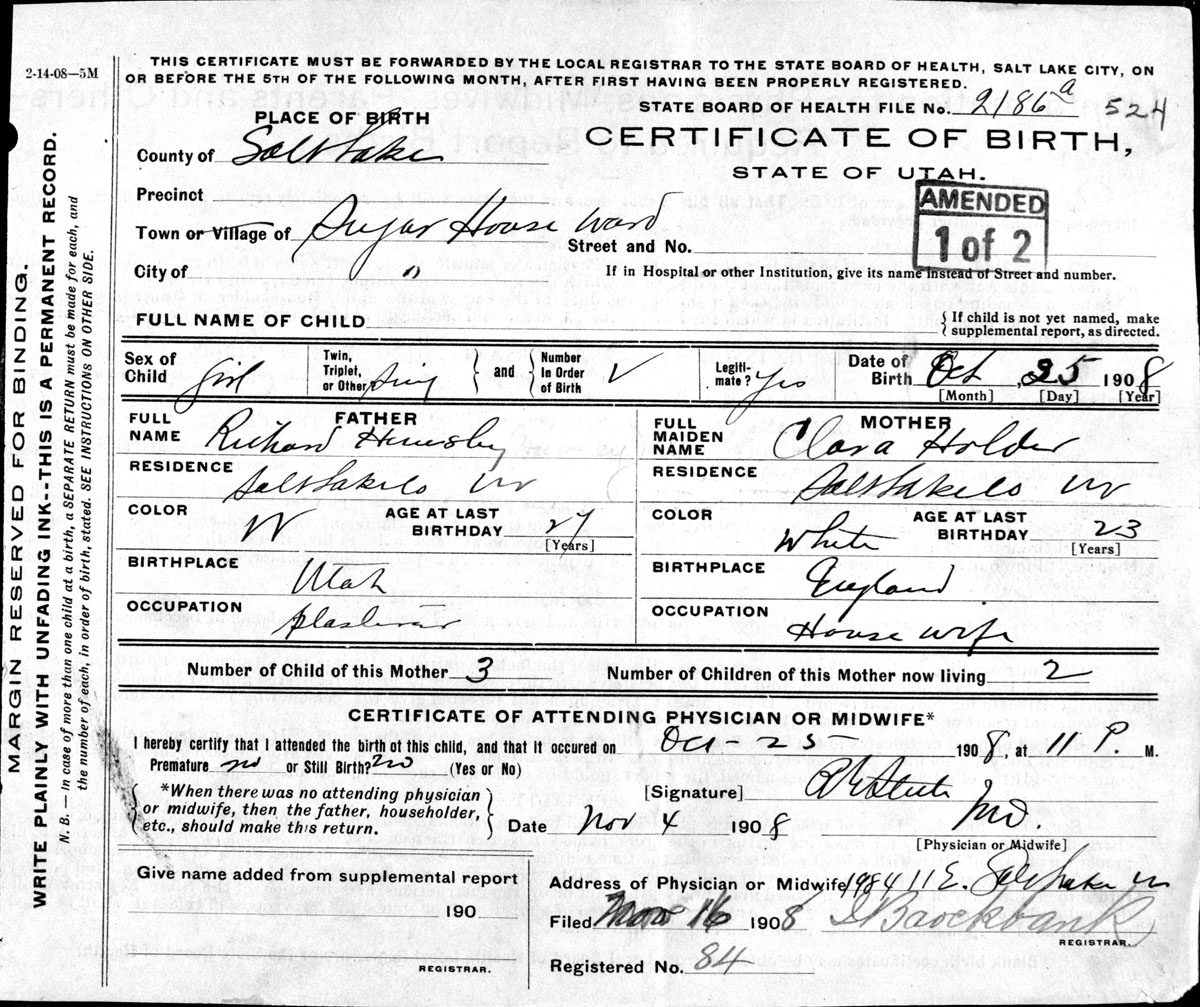 2-14-08—5M
THIS CERTIFICATE MUST BE FORWARDED BY THE LOCAL REGISTRAR TO THE STATE BOARD OF HEALTH, SALT LAKE CITY, ON
OR BEFORE THE 5TH OF THE FOLLOWING MONTH, AFTER FIRST HAVING BEEN PROPERLY REGISTERED.
STATE BOARD OF HEALTH FILE No. 2186a 524
PLACE OF BIRTH
CERTIFICATE OF BIRTH,
STATE OF UTAH.
County of Salt Lake
AMENDED
1 of 2
Precinct
Town or Village of Sugar House Ward
Street and No.
City of "
If in Hospital or other Institution, give its name instead of Street and number.
FULL NAME OF CHILD
{ If child is not yet named, make
supplemental report, as directed.
Sex of Child girl
Twin, Triplet, or Other } and { Number In Order of Birth
Legitimate? Yes
Date of Birth Oct 25 1908
[Month] [Day] [Year]
FATHER
FULL NAME Richard
RESIDENCE Salt Lake Co
COLOR W
AGE AT LAST BIRTHDAY 27
[Years]
BIRTHPLACE Utah
OCCUPATION
MOTHER
FULL MAIDEN NAME Clara Holder
RESIDENCE Salt Lake Co
COLOR White
AGE AT LAST BIRTHDAY 23
[Years]
BIRTHPLACE England
OCCUPATION House wife
Number of Child of this Mother 3
Number of Children of this Mother now living 2
CERTIFICATE OF ATTENDING PHYSICIAN OR MIDWIFE*
I hereby certify that I attended the birth of this child, and that it occured on Oct-25 1908 at 11 P. M.
Premature no or Still Birth? no (Yes or No)
{ *When there was no attending physician
or midwife, then the father, householder,
etc., should make this return. }
[Signature]
Date Nov 4 1908
MD.
[Physician or Midwife]
Give name added from supplemental report
190
REGISTRAR.
Address of Physician or Midwife 1984 11 E. Salt Lake
Filed Nov 16 1908 Brockbank
REGISTRAR.
Registered No. 84
MARGIN RESERVED FOR BINDING.
WRITE PLAINLY WITH UNFADING INK--THIS IS A PERMANENT RECORD.
N. B.— In case of more than one child at a birth, a SEPARATE RETURN must be made for each, and
the number of each, in order of birth, stated. SEE INSTRUCTIONS ON OTHER SIDE.